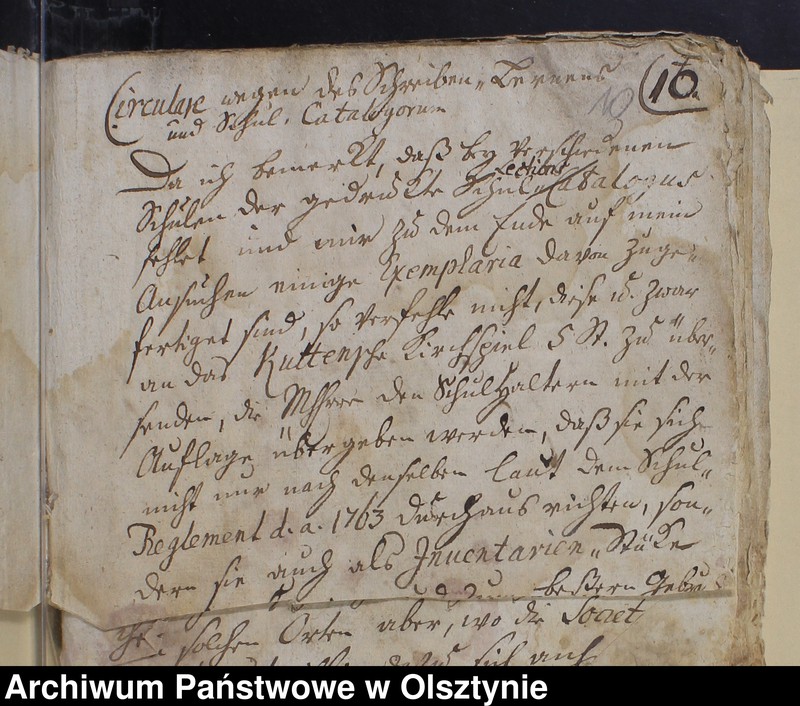 Circulare wegen des Schreiben-Lernens
und Schul-Catalogorum
10
16
Da ich bemerkt, daß bey verschiedenen
Schulen der gedruckte Schul-Lections Catalogus
fehlet und mir zu dem Ende auf mein
Ansuchen einige Exemplaria davon zuge-
fertiget sind, so verfehle nicht, diese u. zwar
an das Kuttensche Kirchspiel 5 St. zu über-
senden, die den Schulhaltern mit der
Auflage übergeben werden, daß sie sich
nicht nur nach denselben laut dem Schul-
Reglement d. a. 1763 durchaus richten, son-
dern sie auch als Inventarien-Stüke
beßern
solchen Orten aber, wo die Societ
sich auch
Archiwum Państwowe w Olsztynie